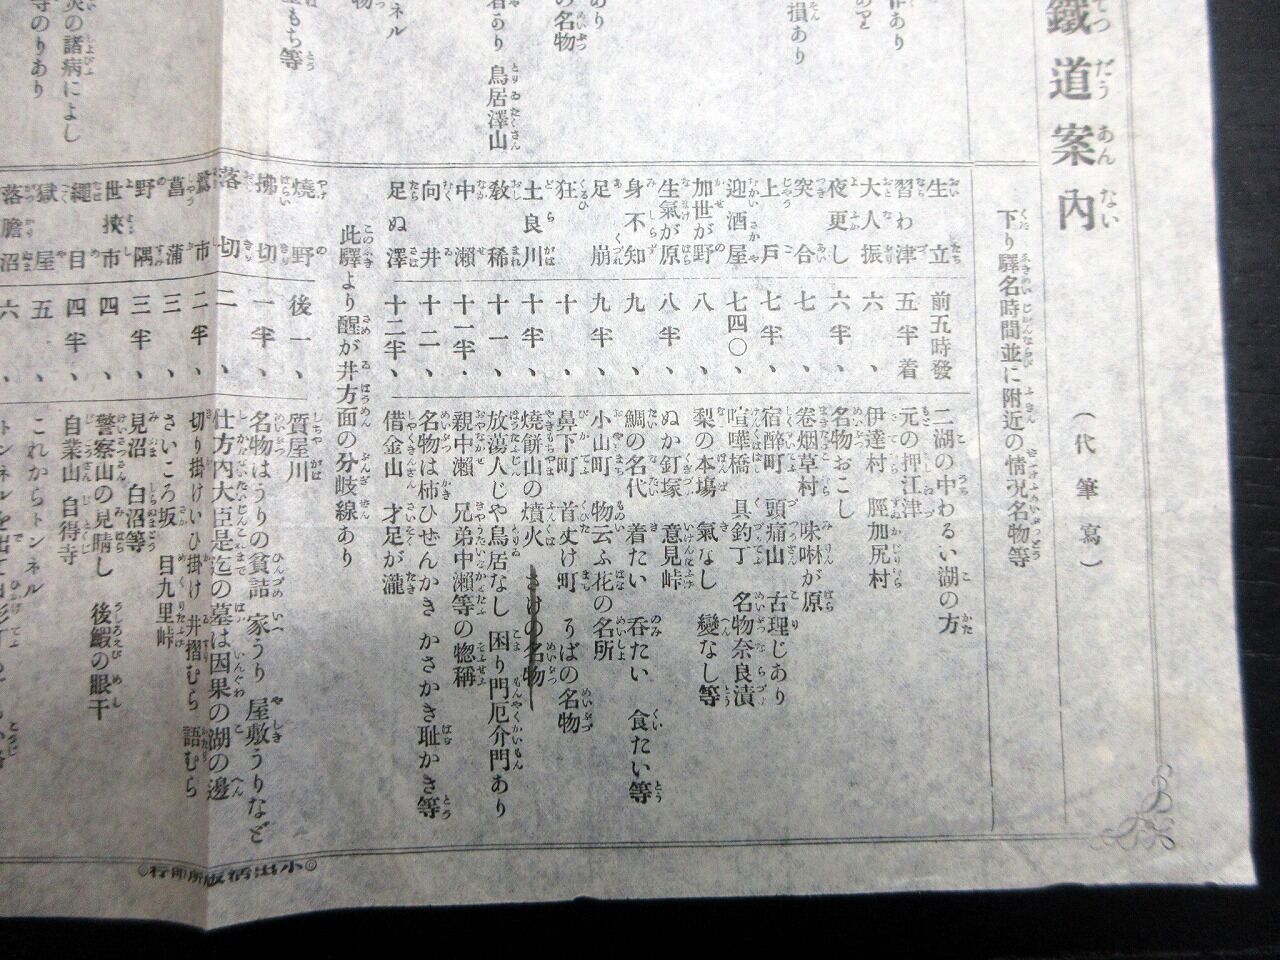 鐵道案內
(代筆寫)
下り驛名時間並に附近の情况名物等
生立 前五時發 二湖の中わるい湖の方
習わ津 五半着 元の押江津
大人振 六、 伊達村 脛加尻村
夜更し 六半、 名物おこし
突合 七、 卷烟草村 味啉が原
上戸 七半、 宿醉町 頭痛山 古理じあり
迎酒屋 七四〇、 喧嘩橋 具釣丁 名物奈良漬
加世が野 八、 梨の本場 氣なし 變なし等
生氣が原 八半、 ぬか釘塚 意見峠
身不知 九、 鯛の名代 着たい 呑たい 食たい等
足崩 九半、 小山町 物云ふ花の名所
狂 十、 鼻下町 首丈け町 うばの名物
土良川 十半、 燒餅山の墳火 さけの名物
敎稀 十一、 放蕩人じや鳥居なし 困り門厄介門あり
中瀬 十一半、 親中瀬 兄弟中瀬等の惣稱
向井 十二、 名物は柿ひぜんかき かさかき耻かき等
足ぬ澤 十二半、 借金山 才足が瀧
此驛より醒が井方面の分岐線あり
燒野 後一、 質屋川
拂切 一半、 名物はうりの貧詰 家うり 屋敷うりなど
落切 二、 仕方内大臣是迄の墓は因果の湖の邊
鷺市 二半、 切り掛けいひ掛け 井摺むら 語むら
菖蒲 三、 さいころ坂 目九里峠
野隅 三半、 見沼 白沼等
世挾市 四、 警察山の見晴し 後鰕の眼干
繩目 四半、 自業山 自得寺
獄屋 五、 これからトンネル
落膽沼 六、
あり
損あり
あり
の名物
鳥居澤山
ネル
もち等
の諸病によし
のりあり
◎小出活版所印行◎